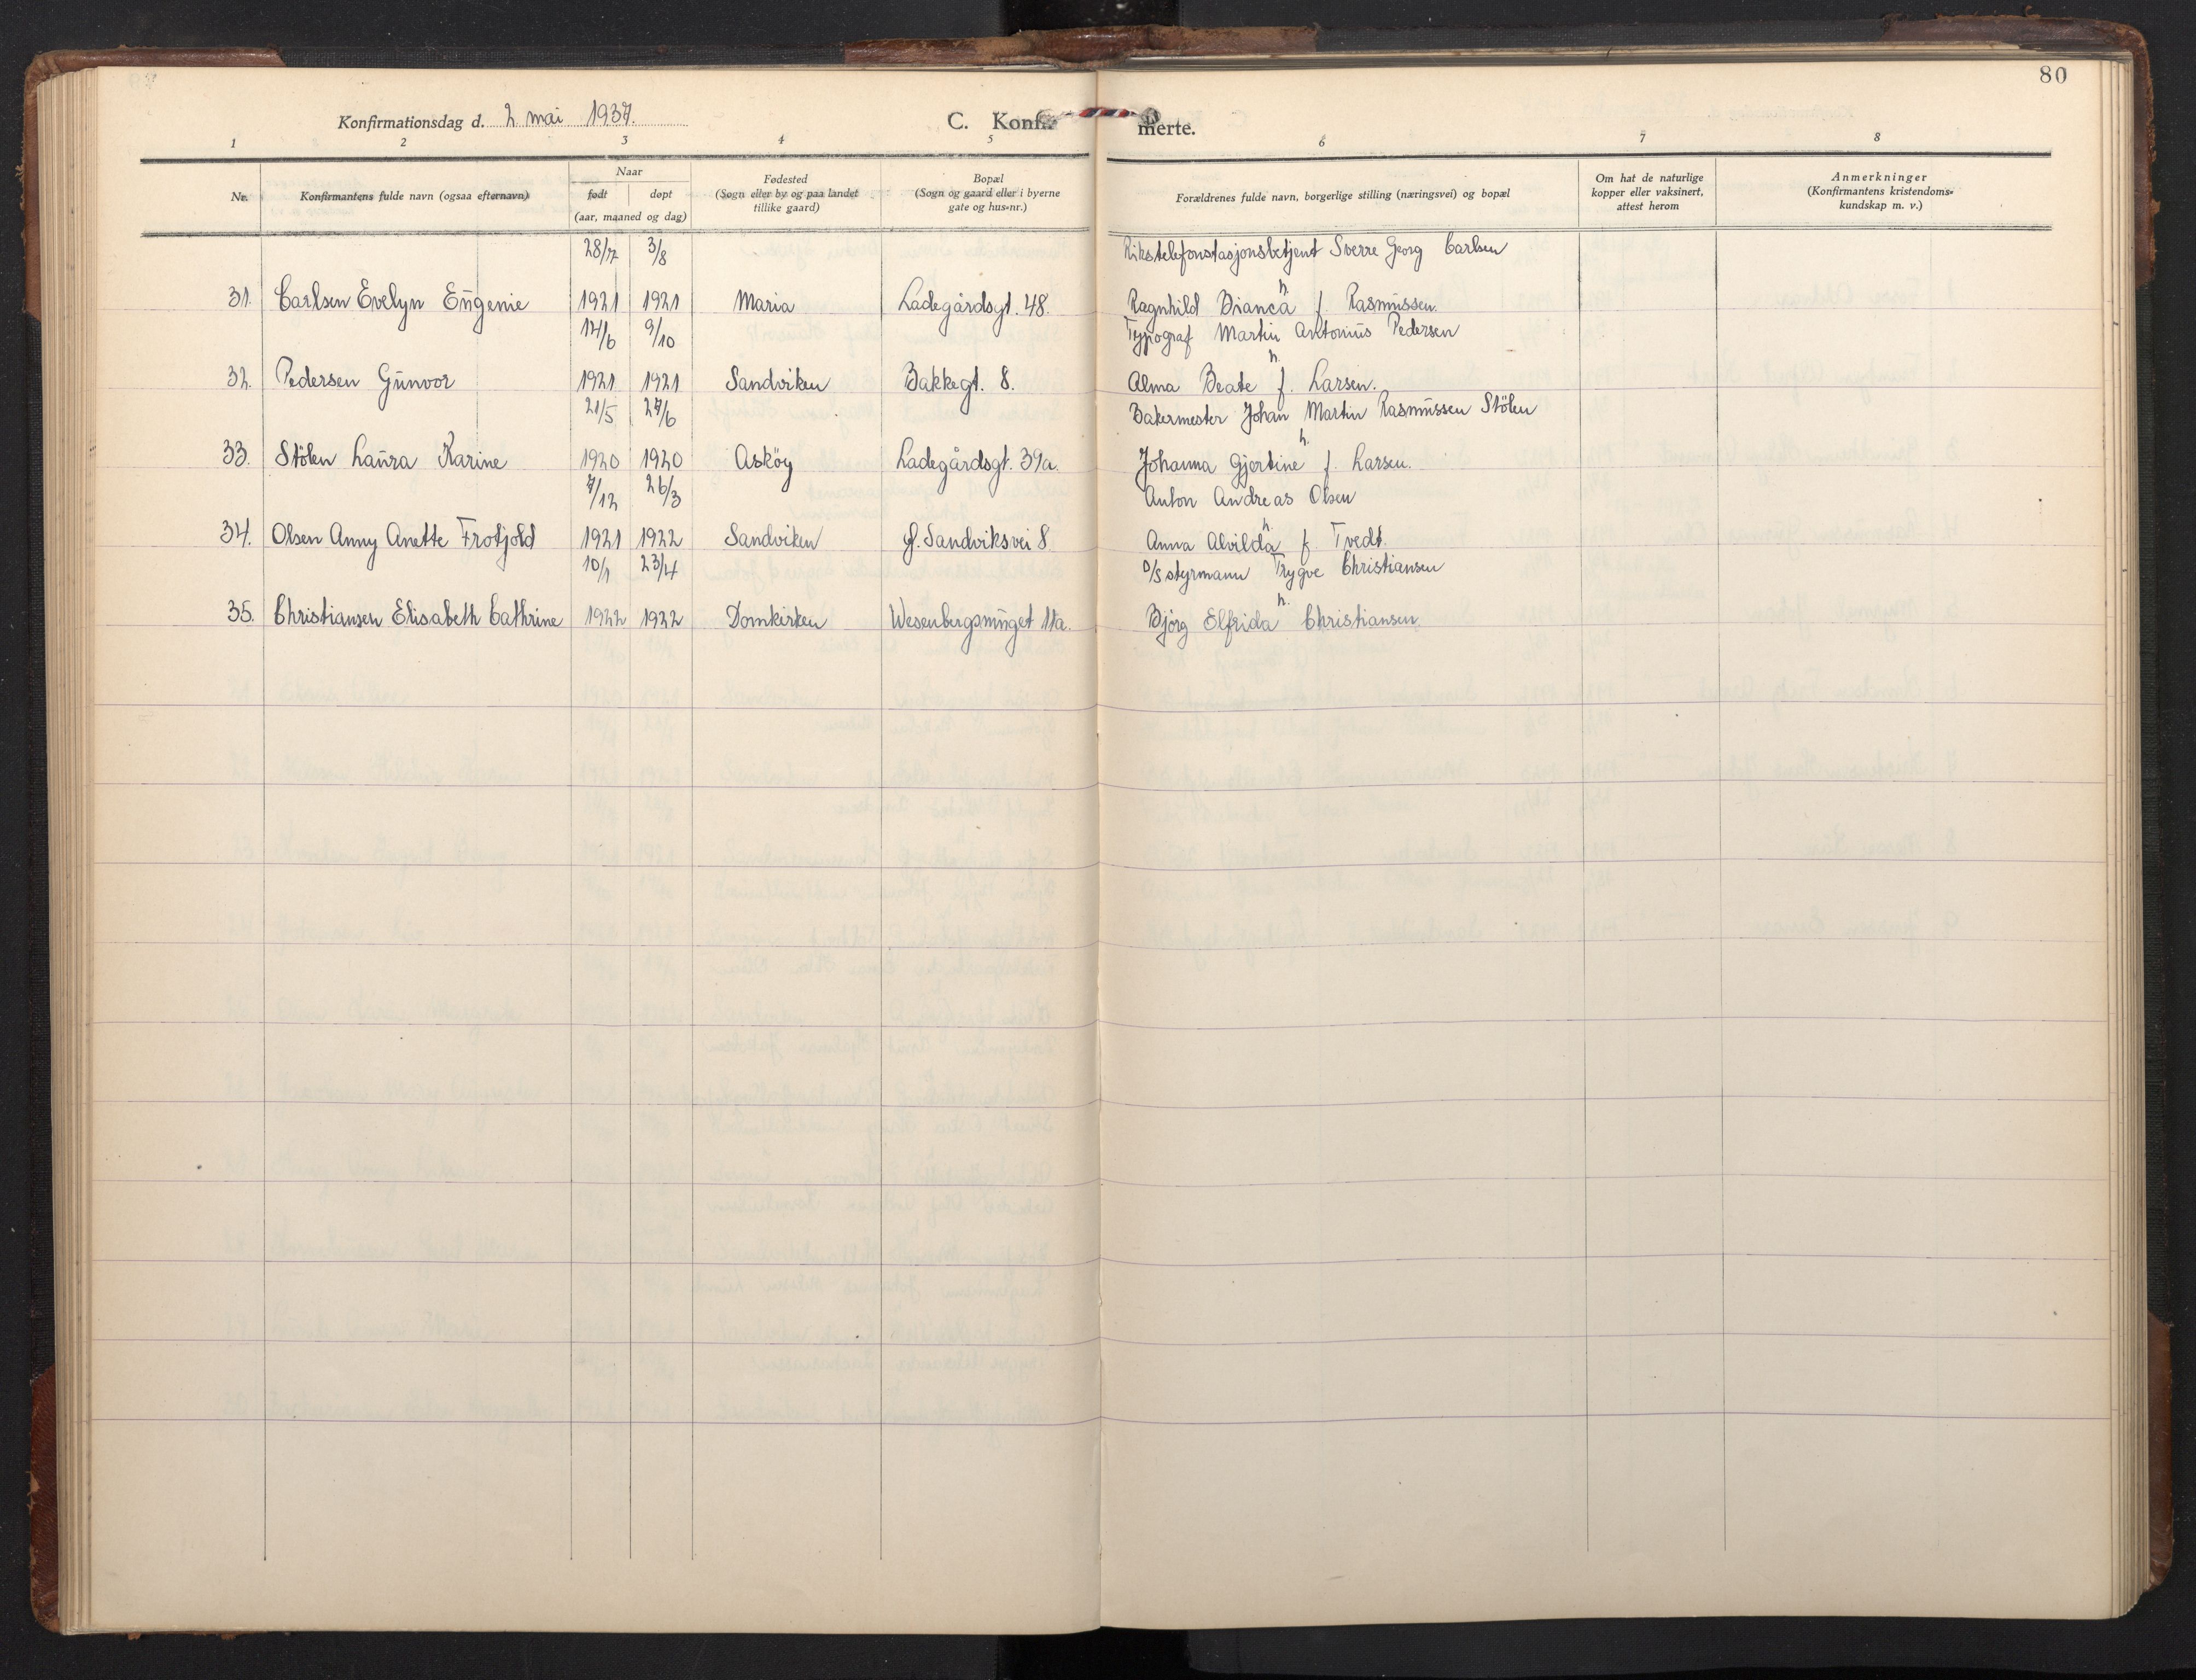 80
Konfirmationsdag d. 2 mai 1937.
C. Konfir
merte.
1 2 3 4 5 6 7 8
Nr.
Konfirmantens fulde navn (ogsaa efternavn)
Naar
født døpt
(aar, maaned og dag)
Fødested
(Sogn eller by og paa landet
tillike gaard)
Bopæl
(Sogn og gaard eller i byerne
gate og hus-nr.)
Forældrenes fulde navn, borgerlige stilling (næringsvei) og bopæl
Om hat de naturlige
kopper eller vaksinert,
attest herom
Anmerkninger
(Konfirmantens kristendoms-
kundskap m. v.)
3/8 Rikstelefonstasjonsbetjent Sverre Georg Carlsen
31. Carlsen Evelyn Eugenie 1921 1921 Maria Ladegårdsgt. 48. Ragnhild Bianca f. Rasmussen.
9/10 Typograf Martin Antonius Pedersen
32. Pedersen Gunvor 1921 1921 Sandviken Bakkegt. 8. Alma Beate f. Larsen.
21/5 27/6 Bakermester Johan Martin Rasmussen Stölen
33. Stölen Laura Karine 1920 1920 Asköy Ladegårdsgt. 39a. Johanna Gjertine f. Larsen.
7/12 26/3 Anton Andreas Olsen
34. Olsen Anny Anette Frotjold 1921 1922 Sandviken Sandviksvei 8. Anna Alvilda f. Tvedt.
10/1 23/4 D/S styrmann Trygve Christiansen
35. Christiansen Elisabeth Cathrine 1922 1922 Domkirken Wesenbergsmuget 11a. Bjørg Elfrida Christiansen